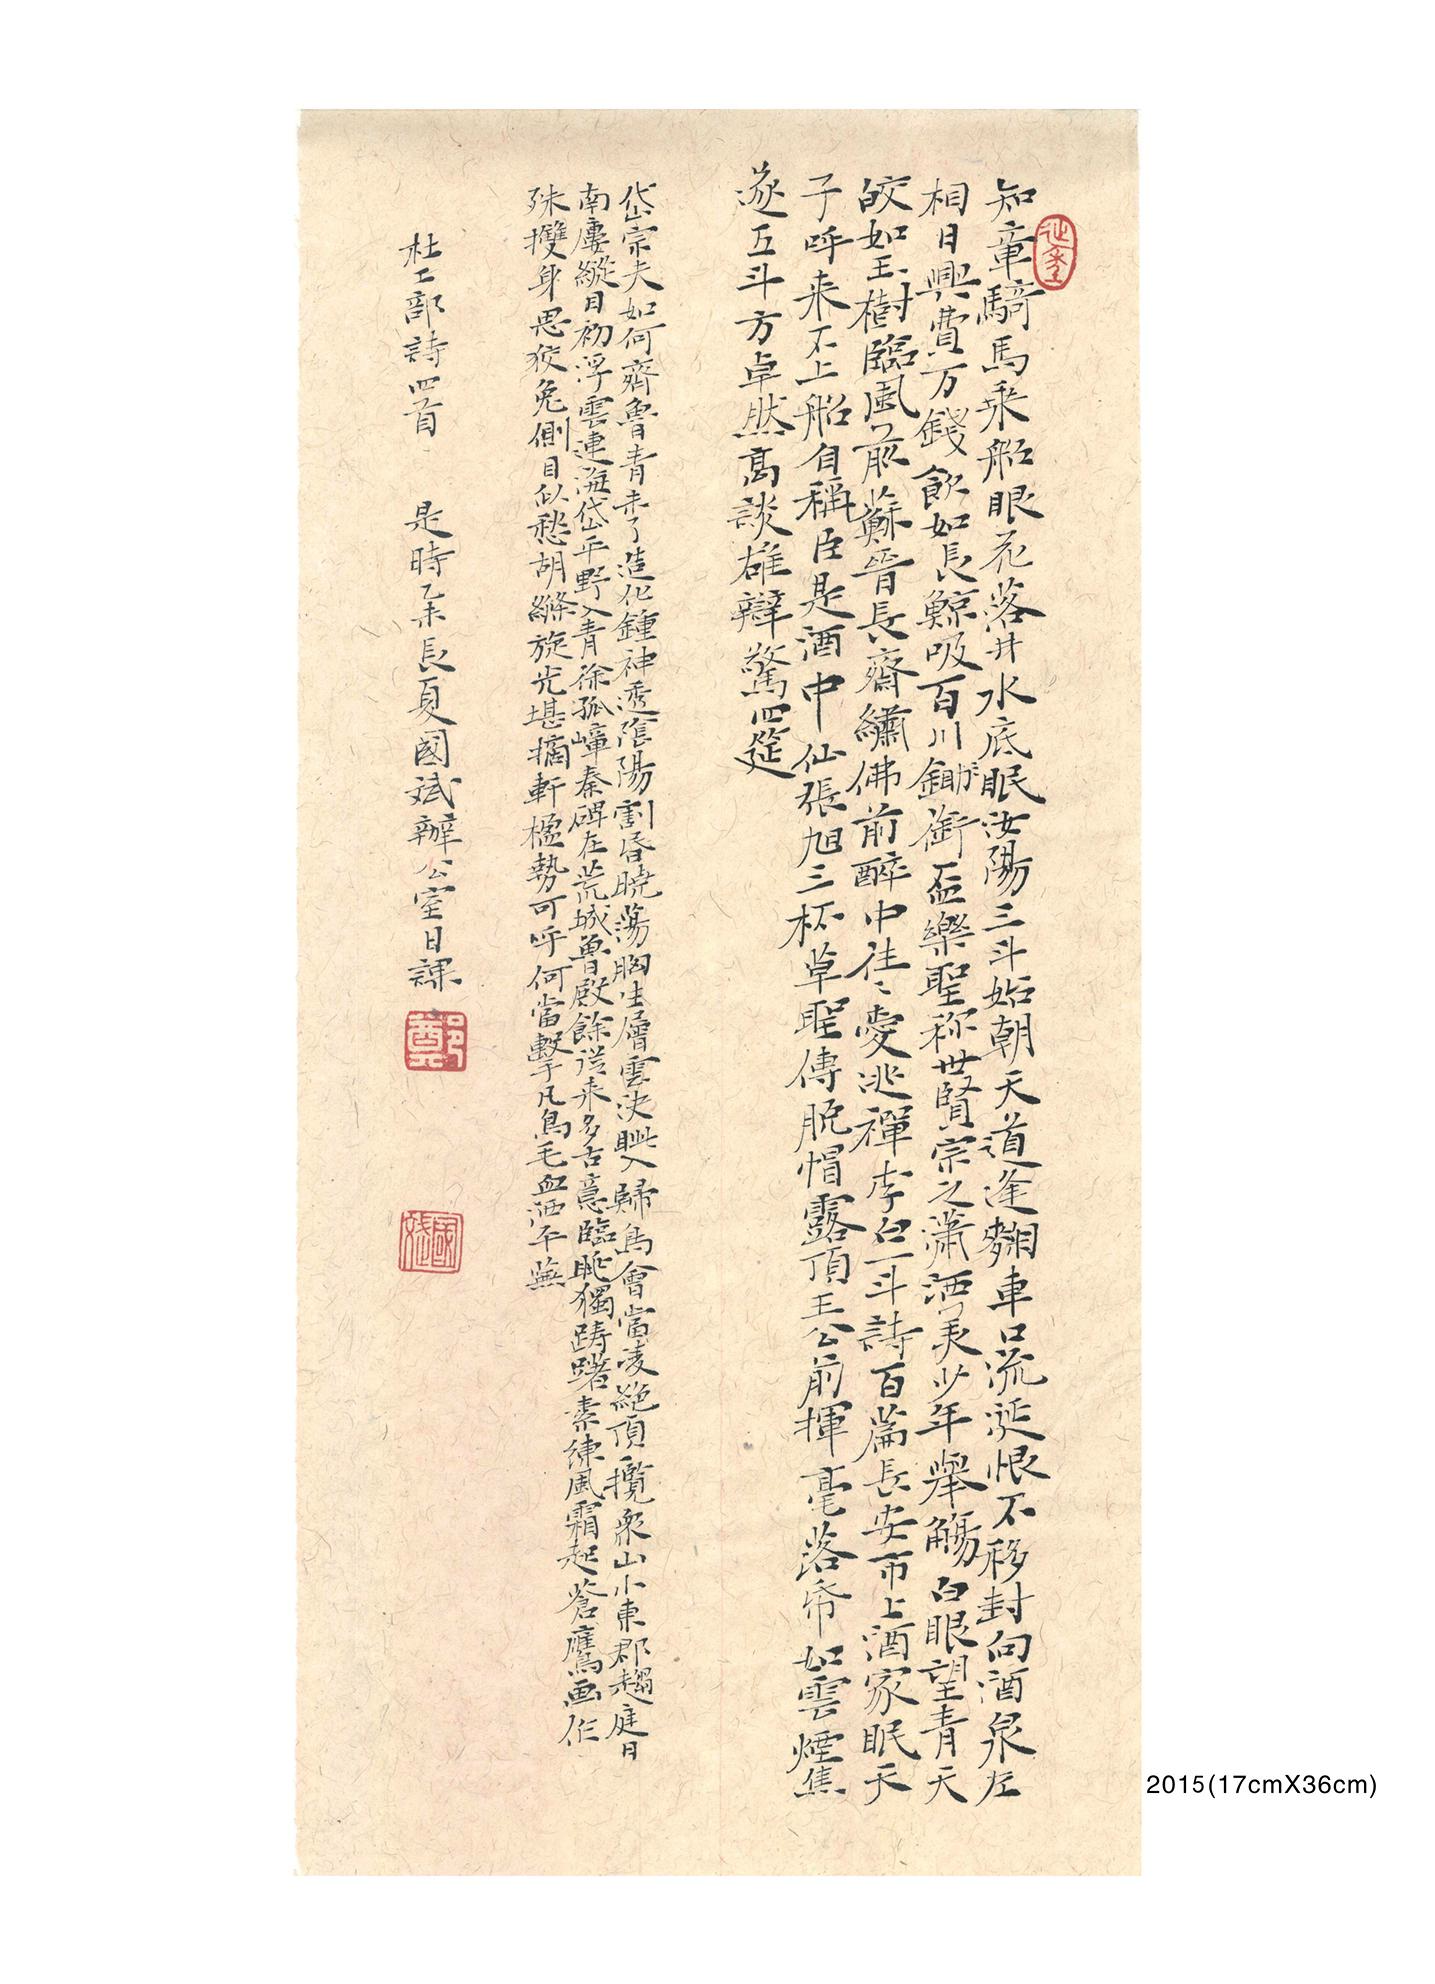 知章騎馬乘船眼花落井水底眠汝陽三斗始朝天道逢麴車口流涎恨不移封向酒泉左
相日興費万錢飲如長鯨吸百川銜盃樂聖称世賢宗之潇洒美少年舉觴白眼望青天
皎如玉樹臨風前蘇晉長齋繡佛前醉中往〻愛逃禪李白一斗詩百篇長安市上酒家眠天
子呼来不上船自稱臣是酒中仙張旭三杯草聖傳脫帽露頂王公前揮毫落帋如雲煙焦
遂五斗方卓然高談雄辯驚四筵
岱宗夫如何齊魯青未了造化鍾神透陰陽割昏曉蕩胸生層雲決眥入歸鳥會當凌絕頂一攬衆山小東郡趨庭日
南廔縱目初浮雲連海岱平野入青徐孤嶂秦碑在荒城魯殿餘從来多古意臨眺獨踌躇素練風霜起蒼鷹画作
殊㩳身思狡兔側目似愁胡絛旋光堪摘軒楹勢可呼何當擊凡鳥毛血洒平蕪
杜工部詩四首 是時乙未長夏國斌辦公室日課
鄭
國斌
2015(17cmX36cm)